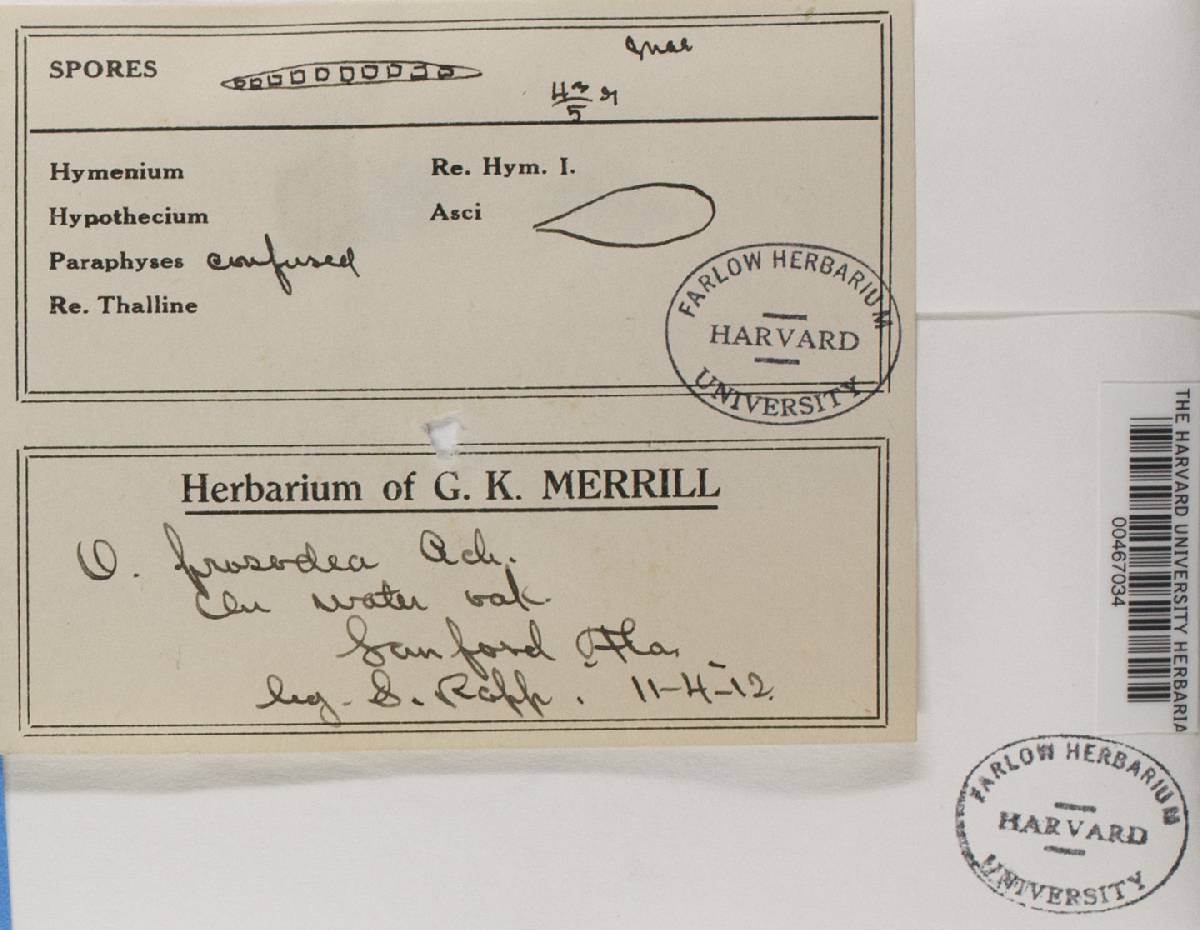 SPORES
43/5
Hymenium
Re. Hym. I.
Hypothecium
Asci
Paraphyses confused
Re. Thalline
FARLOW HERBARIUM
HARVARD
UNIVERSITY
Herbarium of G. K. MERRILL
O. prosodea Ach.
On water oak
Sanford Fla.
leg. S. Rapp. 11-4-12.
THE HARVARD UNIVERSITY HERBARIA
00467034
FARLOW HERBARIUM
HARVARD
UNIVERSITY